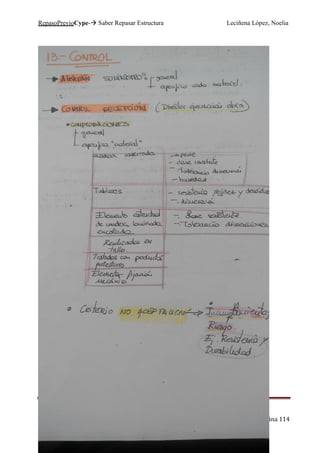 RepasoPrevioCype-→ Saber Repasar Estructura Lecíñena López, Noelia
13.- CONTROL
SUMINISTRO: general
específico cada material.
CONTROL RECEPCIÓN (Director ejecución obra)
* COMPROBACIONES
general
específico "material"
Madera aserrada - especie
- clase resistente
- tolerancia dimensión
- humedad
Tableros - resistencia, rigidez y densidad
- dimensión
Elemento estructural - Clase resistente
de madera laminada - Tolerancia dimensiones
encolada
Realizados en
taller
Tratados con productos
protectores
Elementos fijación
mecánico
* CRITERIO NO ACEPTACIÓN → Incumplimiento
Riesgo
Resistencia y
Durabilidad
ina 114